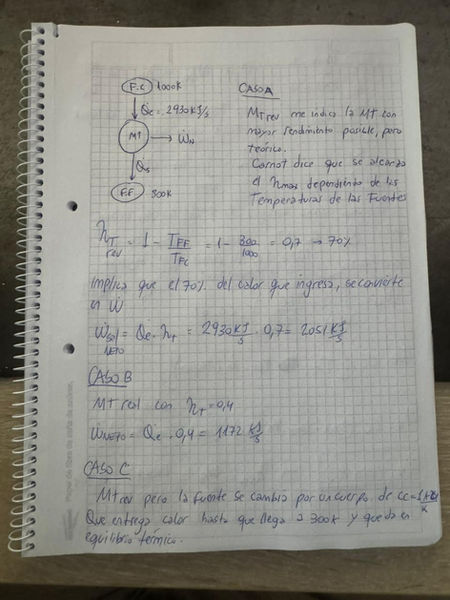 F.C 1000K
Q̇e = 2930 KJ/s
MT → Ẇn
Q̇s
F.F 300K
CASO A
MTrev me indica la MT con
mayor rendimiento posible, pero
teórico.
Carnot dice que se alcanza
el ηmax dependiendo de las
Temperaturas de las Fuentes
ηT rev = 1 - TFF/TFC = 1 - 300/1000 = 0,7 → 70%
Implica que el 70% del calor que ingresa, se convierte
en Ẇ
Ẇsal NETO = Q̇e . ηT = 2930 KJ/s . 0,7 = 2051 KJ/s
CASO B
MT real con ηT = 0,4
ẆNETO = Q̇e . 0,4 = 1172 KJ/s
CASO C
MTrev pero la fuente se cambia por un cuerpo de
Que entrega calor hasta que llega a 300K y queda en
equilibrio térmico.